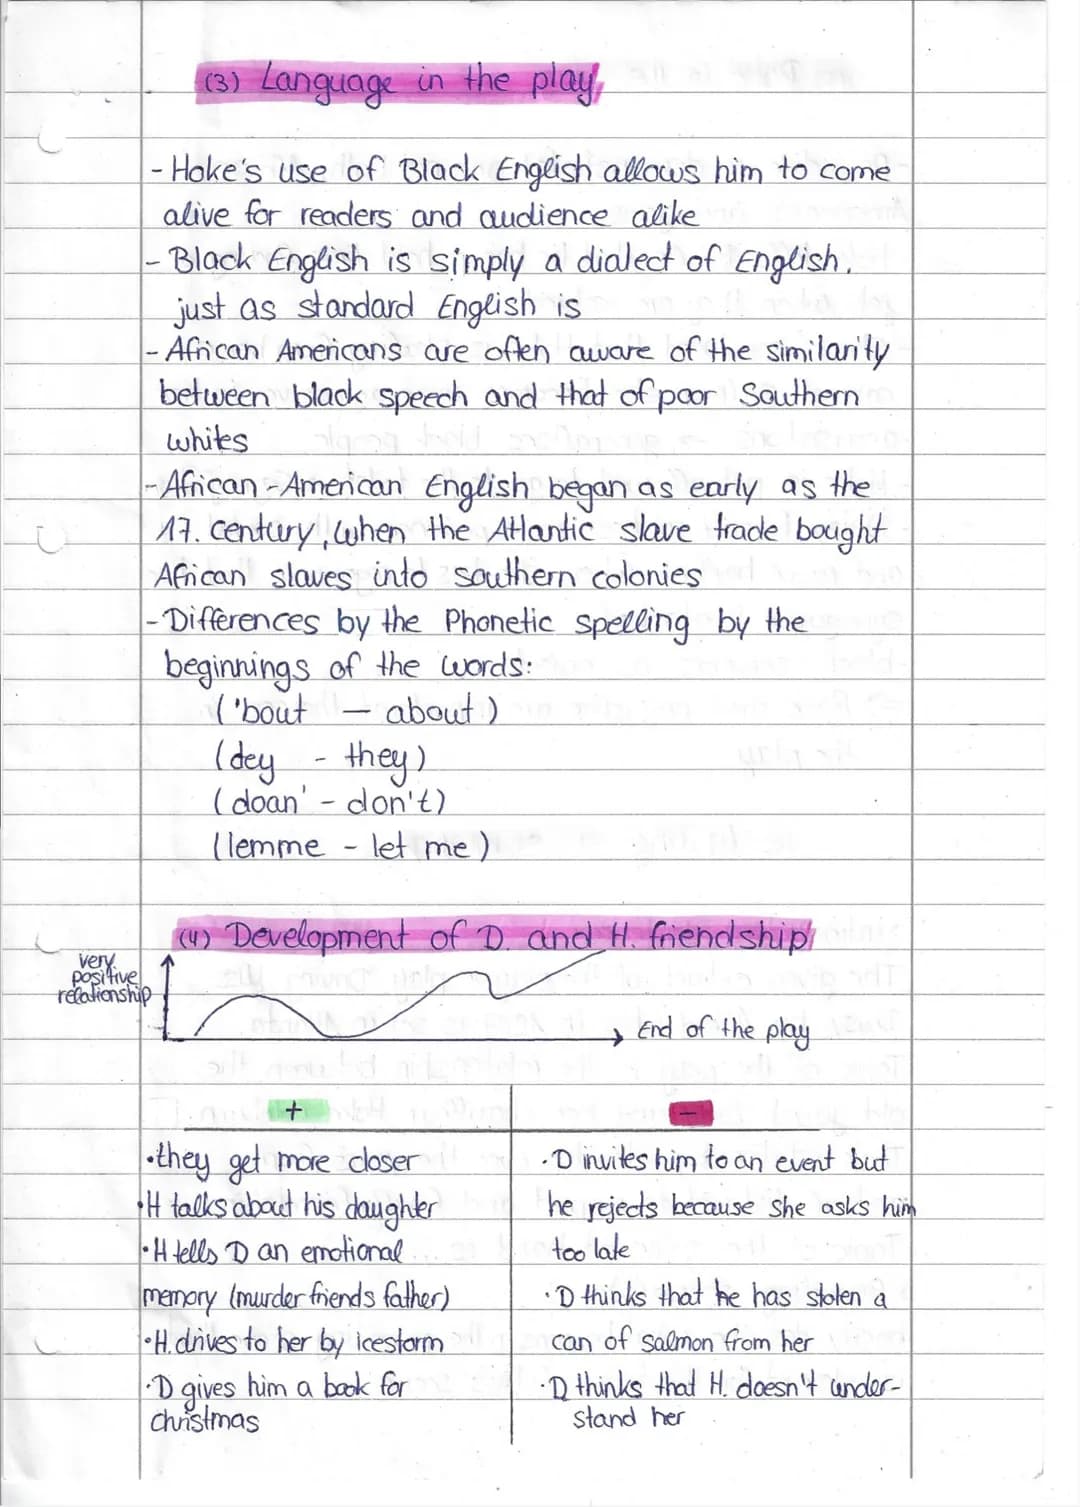 (3) Language in the play
- Hoke's use of Black English allows him to come
alive for readers and audience alike
- Black English is simply a dialect of English,
just as standard English is
- African Americans are often aware of the similarity
between black speech and that of poor Southern
whites
- African-American English began as early as the
17. century, when the Atlantic slave trade bought
African slaves into southern colonies
- Differences by the Phonetic spelling by the
beginnings of the words:
('bout - about)
(dey - they)
(doan' - don't)
(lemme - let me)
(4) Development of D. and H. friendship
very
positive
relationship
End of the play
+ -
•they get more closer
•H talks about his daughter
•H tells D an emotional
memory (murder friends father)
•H. drives to her by icestorm
•D gives him a book for
christmas
•D invites him to an event but
he rejects because she asks him
too late
•D thinks that he has stolen a
can of salmon from her
•D thinks that H. doesn't under-
stand her